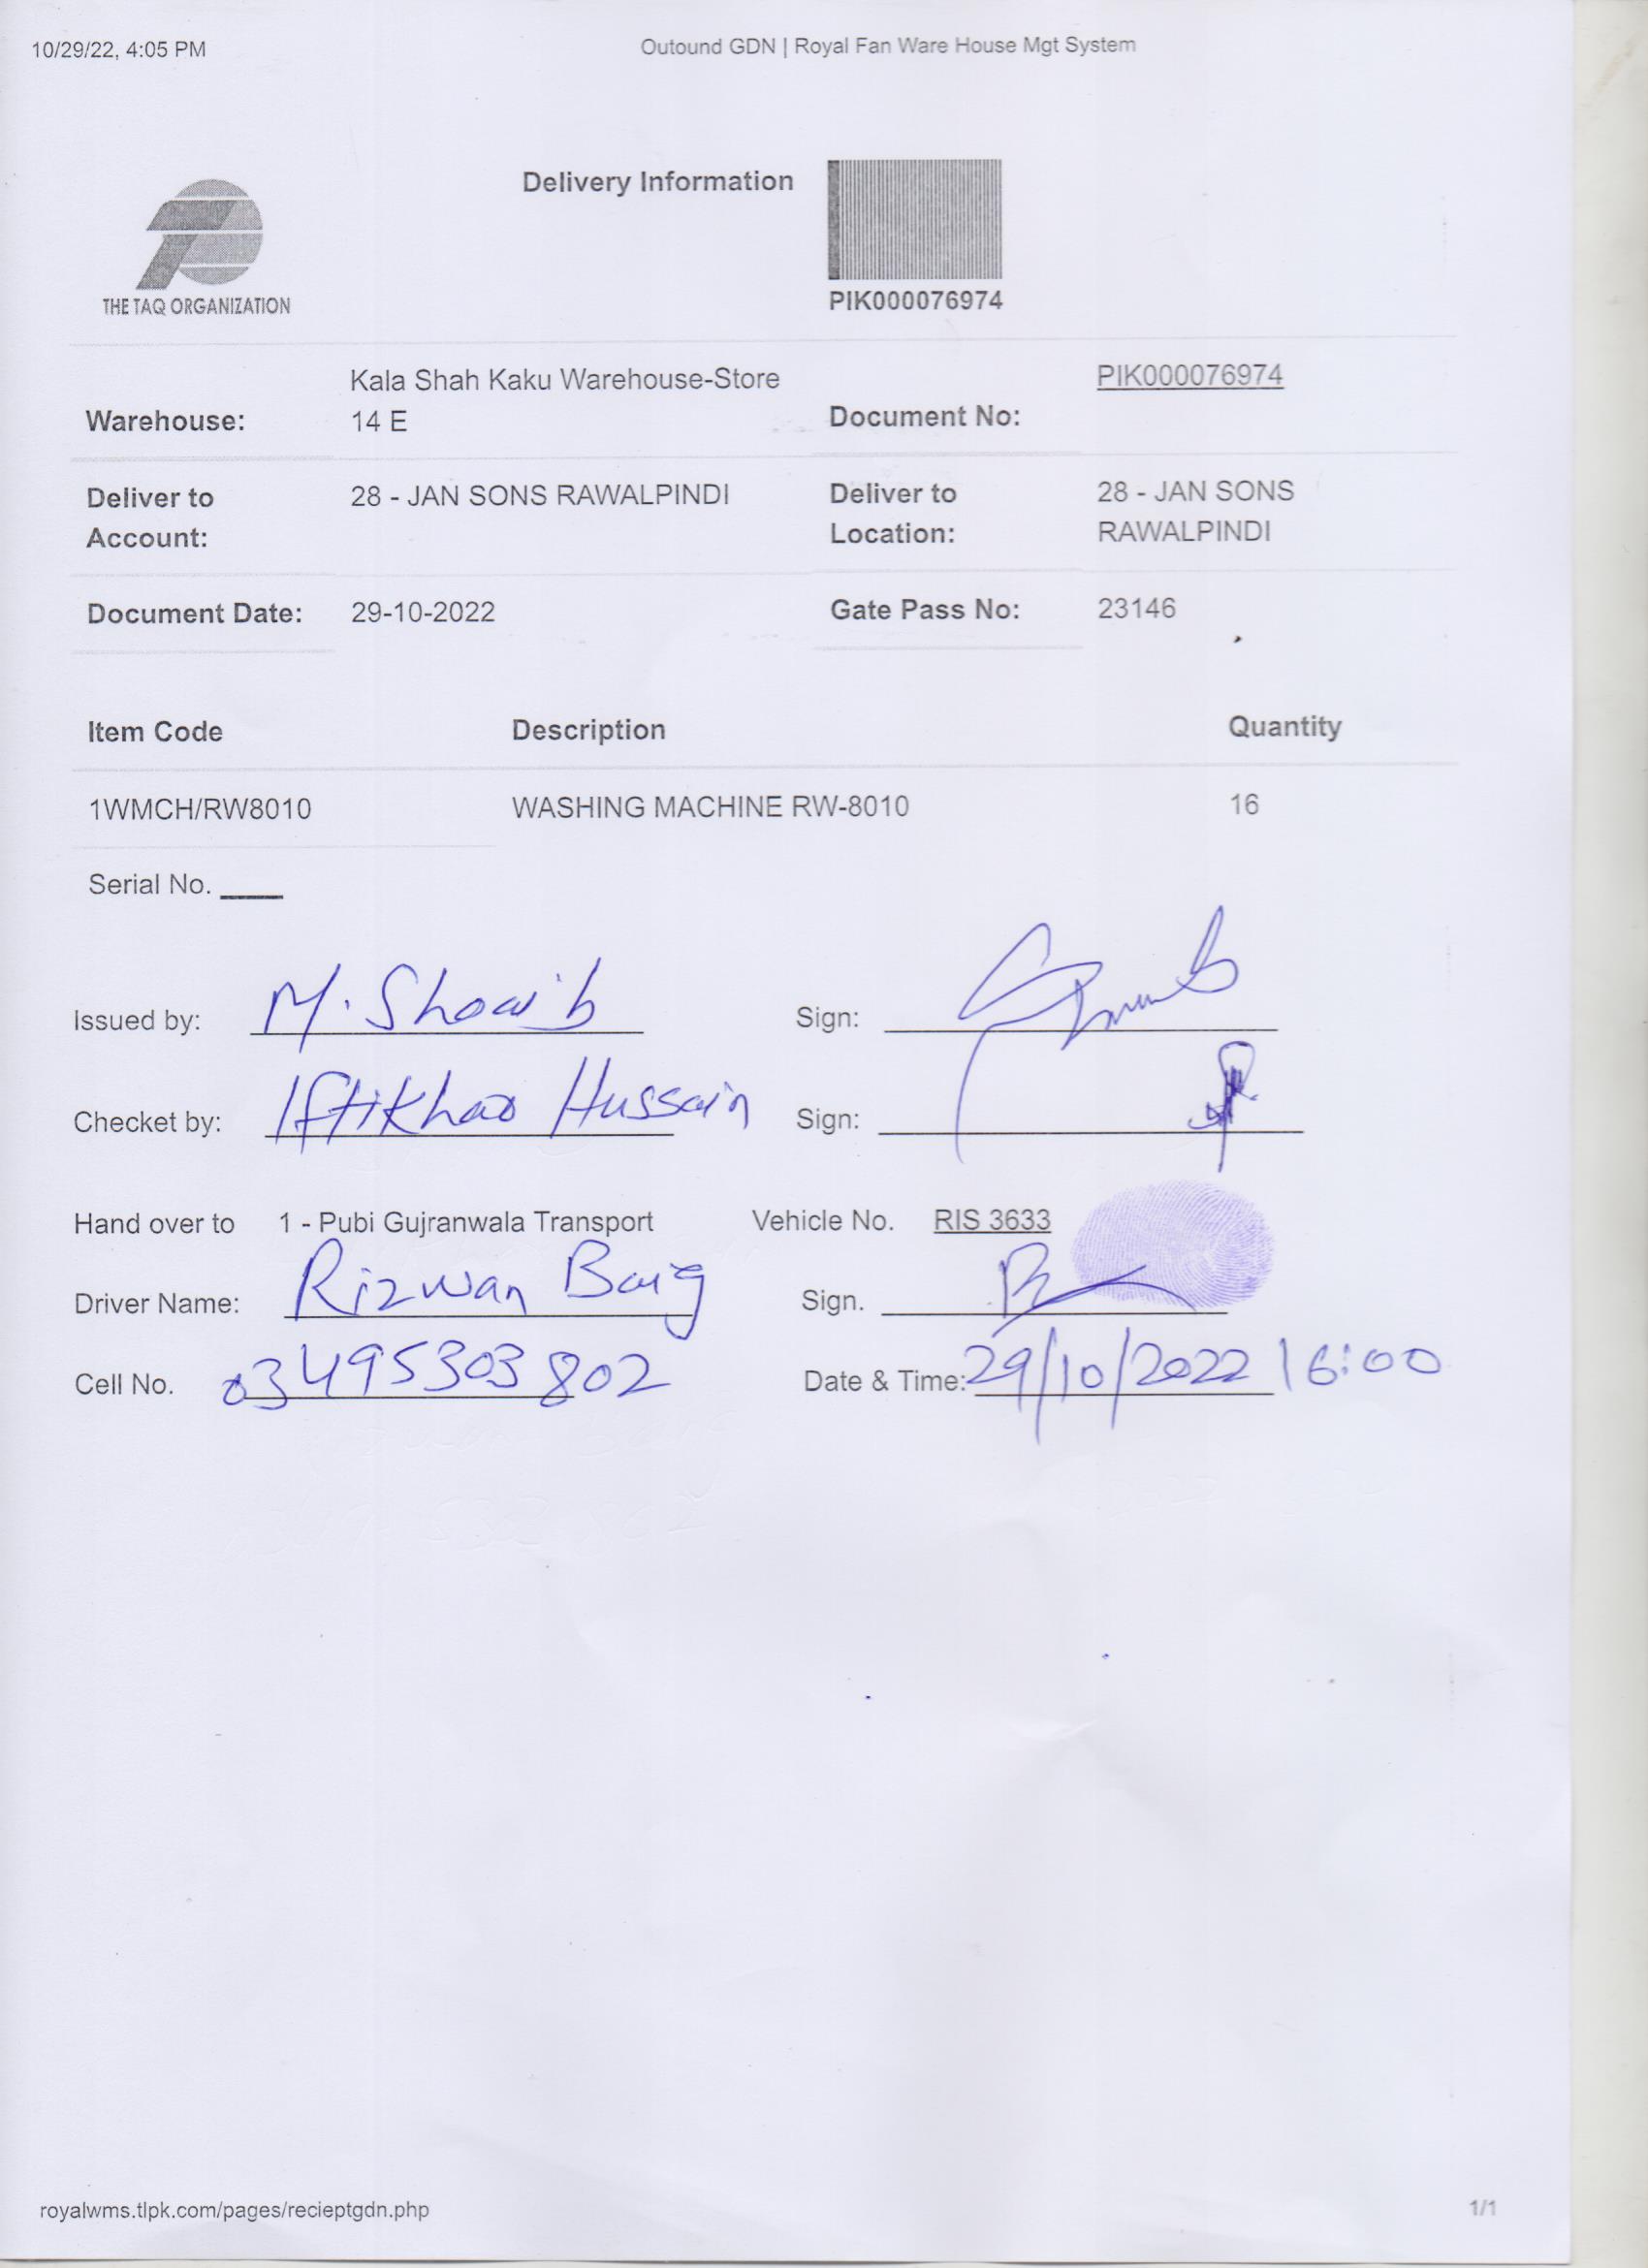 10/29/22, 4:05 PM Outound GDN | Royal Fan Ware House Mgt System
Delivery Information
THE TAQ ORGANIZATION
PIK000076974
Warehouse: Kala Shah Kaku Warehouse-Store 14 E Document No: PIK000076974
Deliver to Account: 28 - JAN SONS RAWALPINDI Deliver to Location: 28 - JAN SONS RAWALPINDI
Document Date: 29-10-2022 Gate Pass No: 23146
Item Code Description Quantity
1WMCH/RW8010 WASHING MACHINE RW-8010 16
Serial No.
Issued by: M. Shoaib Sign:
Checket by: Iftikhar Hussain Sign:
Hand over to 1 - Pubi Gujranwala Transport Vehicle No. RIS 3633
Driver Name: Rizwan Baig Sign.
Cell No. 03495303802 Date & Time: 29/10/2022 16:00
royalwms.tlpk.com/pages/recieptgdn.php 1/1